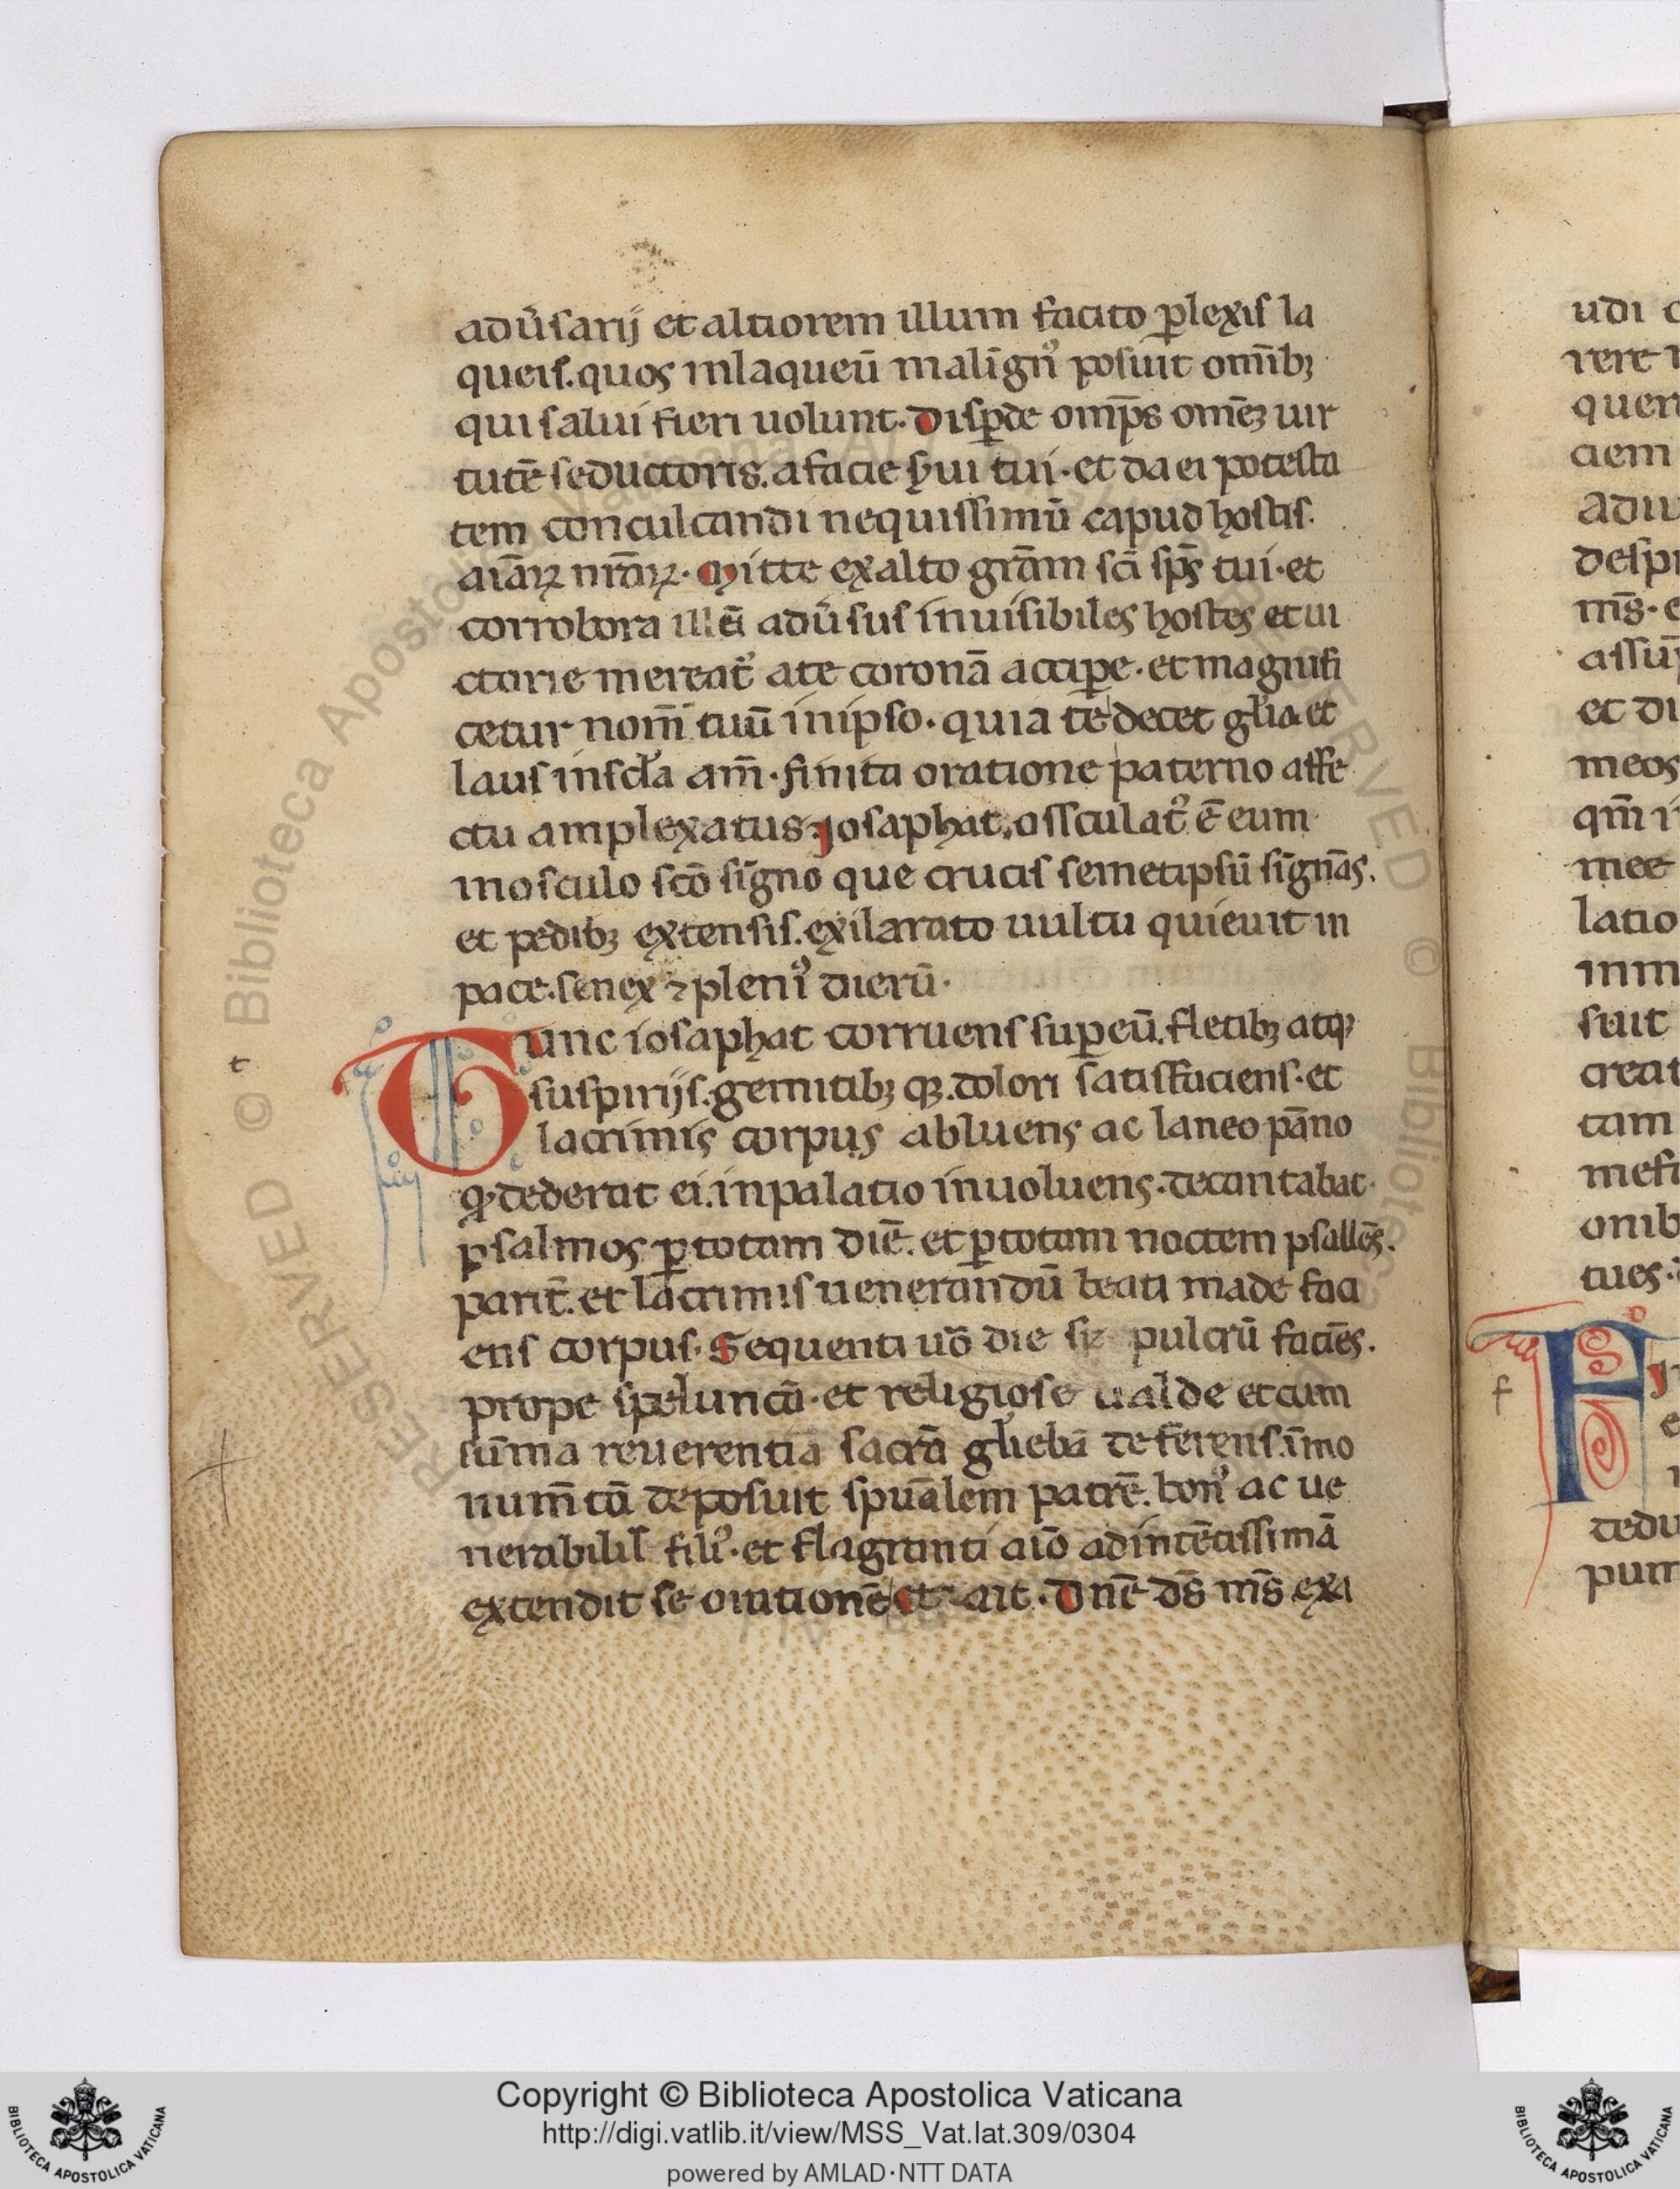 adu͛sarij et altiorem illum facito ꝑlexis la
queis. quos inlaqueū malign᷒ posuit omībꝫ
qui salui fieri uolunt. Disꝑde omp̄s omēꝫ uir
tutē seductoris. a facie s͛ui tui. et da ei potesta
tem conculcandi nequissimū capud hostis.
aīaꝝ nr̄aꝝ. Mitte exalto gr̄am sc̄i sp̄s tui. et
corrobora illū adu͛sus inuisibiles hostes et ui
ctorie mereat᷒ a te coronā acciꝑe. et magnifi
cetur nom̄ tuū in ipso. quia te decet gl̄ia et
laus in scl̄a am̄. finita oratione paterno affe
ctu amplexatus iosaphat, ossculat᷒ ē eum
in osculo sc̄o signo que crucis semetipsū signās.
et pedibꝫ extensis. exilarato uultu quieuit in
pace. senex ⁊ pleni᷒ dierū.
Tunc iosaphat corruens suꝑ eū. fletibꝫ atqꝫ
suspirijs. gemitibꝫ qꝫ. dolori satisfaciens. et
lacrimis corpus abluens ac laneo pāno
ꝙ dederat ei. in palatio inuoluens. decantabat
psalmos ꝑ totam diē. et ꝑ totam noctem psallēs.
parit̄. et lacrimis uenerandū beati made faci
ens corpus. Sequenti uō die se pulcrū faciēs.
prope speluncā. et religiose ualde et cum
sūma reuerentia sacrā gliebā deferens. īmo
num̄tū deposuit spūalem patrē. bon᷒ ac ue
nerabilis fili᷒. et flagranti aīo ad intētissimā
extendit se orationē Et ait. Dn̄e ds̄ ms̄ exa
t
udi
rere
quen
ciem
adiu
despi
ms̄. e
assūp
et di
meos
qm̄ i
mee
latio
inm
suit
creat
tam
mefi
onib
tues.
f
F
dedu
pum
Copyright © Biblioteca Apostolica Vaticana
http://digi.vatlib.it/view/MSS_Vat.lat.309/0304
powered by AMLAD·NTT DATA
BIBLIOTECA APOSTOLICA VATICANA
BIBLIOTECA APOSTOLICA VATICANA